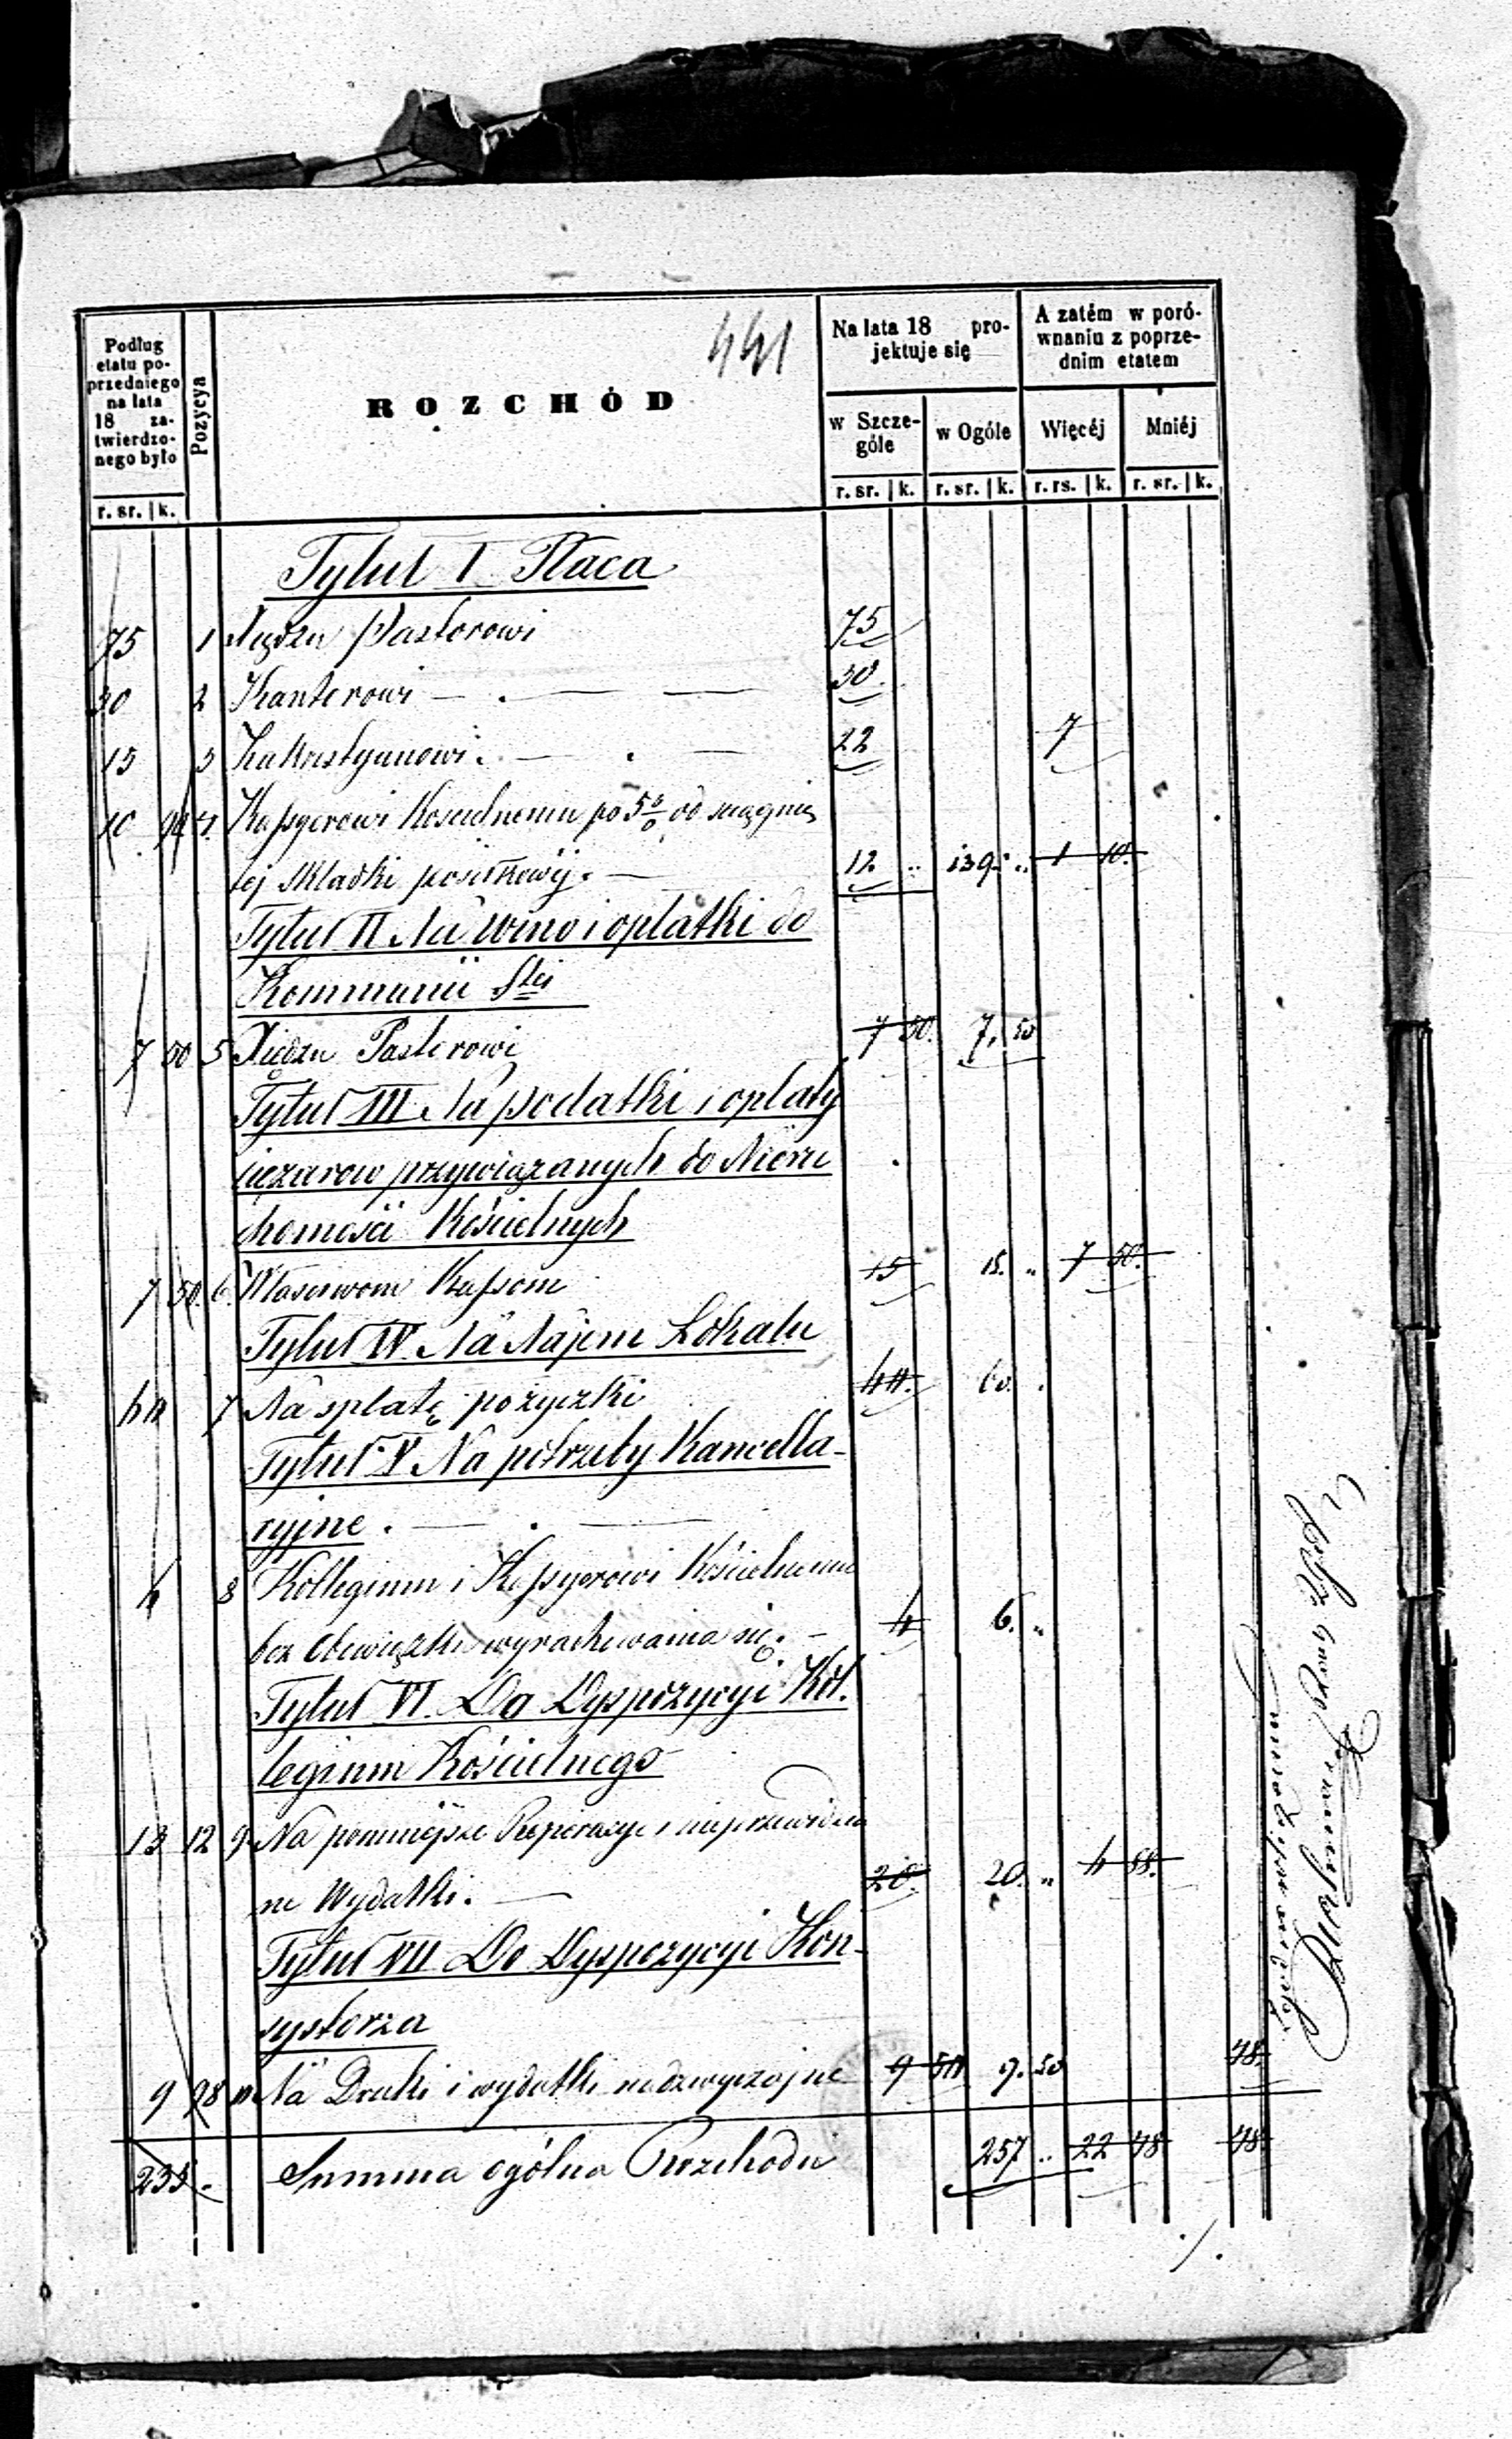 441
Podług
etatu po-
przedniego
na lata
18 za-
twierdzo-
nego było
Pozycya
ROZCHÓD
Na lata 18 pro-
jektuje się
A zatém w poró-
wnaniu z poprze-
dnim etatem
w Szcze-
góle
w Ogóle
Więcéj
Mniéj
r. sr. k. r. sr. k. r. sr. k. r. rs. k. r. sr. k.
Tytuł I Płaca
75 1 Xiędzu Pastorowi 75
30 2 Kantorowi 30
15 3 Zakrystyanowi 22 7
10 90 4 Kassyerowi Kościelnemu po 5% od ściągnię
tej składki posiłkowéj 12 139 1 10
Tytuł II Na wino i opłatki do
Kommunii Stej
7 50 5 Xiędzu Pastorowi 7 50 7. 50
Tytuł III Na podatki i opłaty
ciężarow przywiązanych do Nieru
chomości Kościelnych
7 50 6 Właściwom Kassom 15 15 7 50
Tytuł IV Na Najem Lokalu
44 7 Na spłatę pożyczki 44 60
Tytuł V Na potrzeby Kancella-
ryjne
4 8 Kollegium i Kassyerowi Kościelnemu
bez obowiązku wyrachowania się 4 6
Tytuł VI Do Dyspozycyi Kol-
legium Kościelnego
13 12 9 Na pomniejsze Reperacye i nieprzewidzia
ne Wydatki 20 20 4 88
Tytuł VII Do Dyspozycyi Kon-
systorza
9 98 10 Na Druki i wydatki nadzwyczajne 9 50 9. 50 48
235 Summa ogólna Rozchodu 257 22 48 48